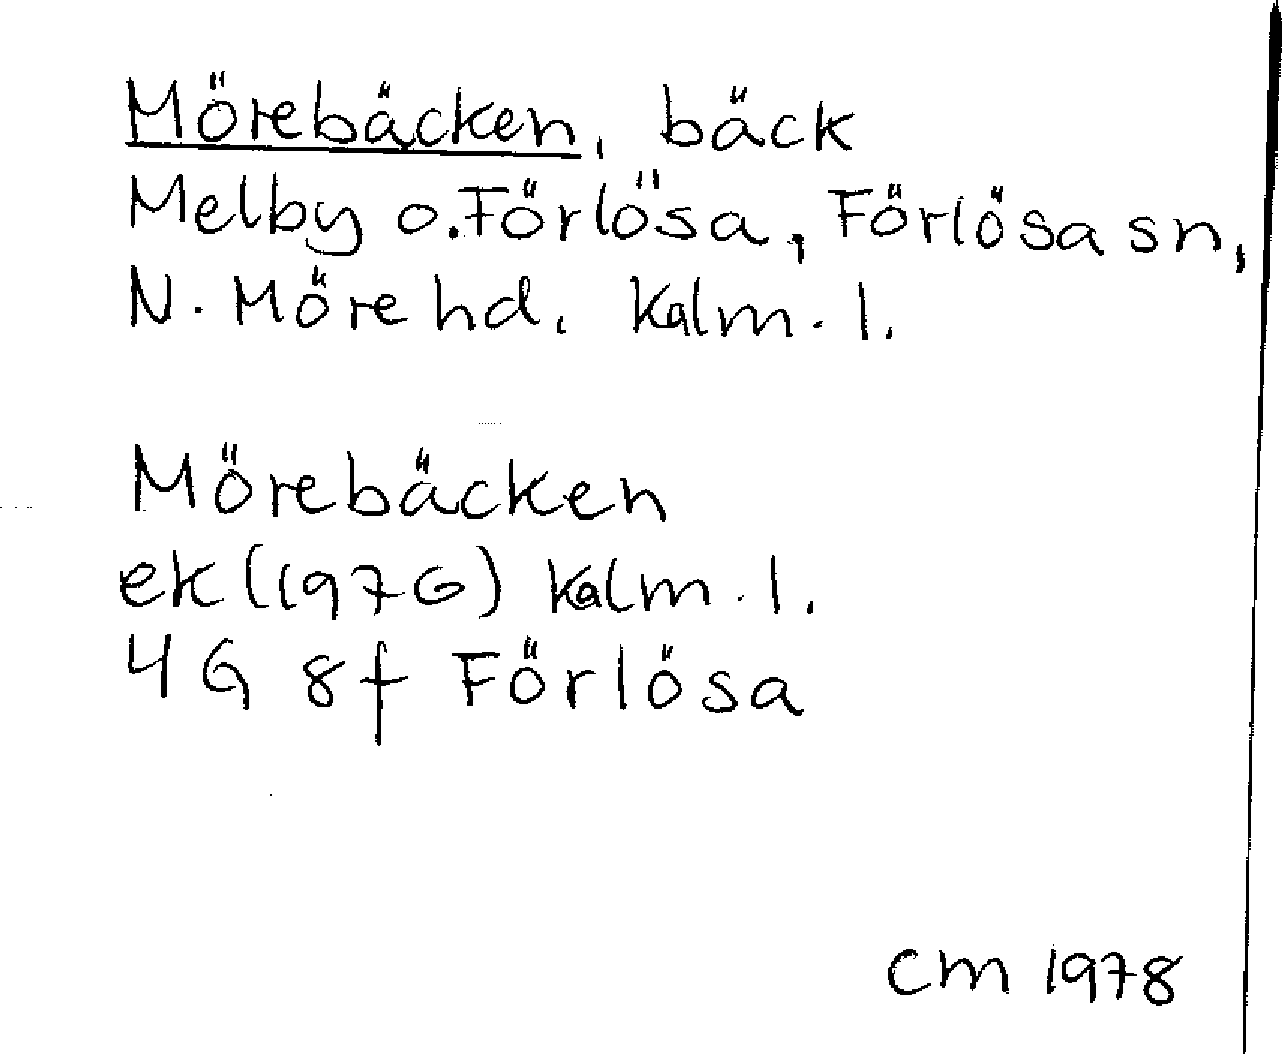 Mörebäcken, bäck
Melby o. Förlösa, Förlösa sn,
N. Möre hd. Kalm. l.
Mörebäcken
ek (1976) Kalm. l.
4G 8f Förlösa
CM 1978